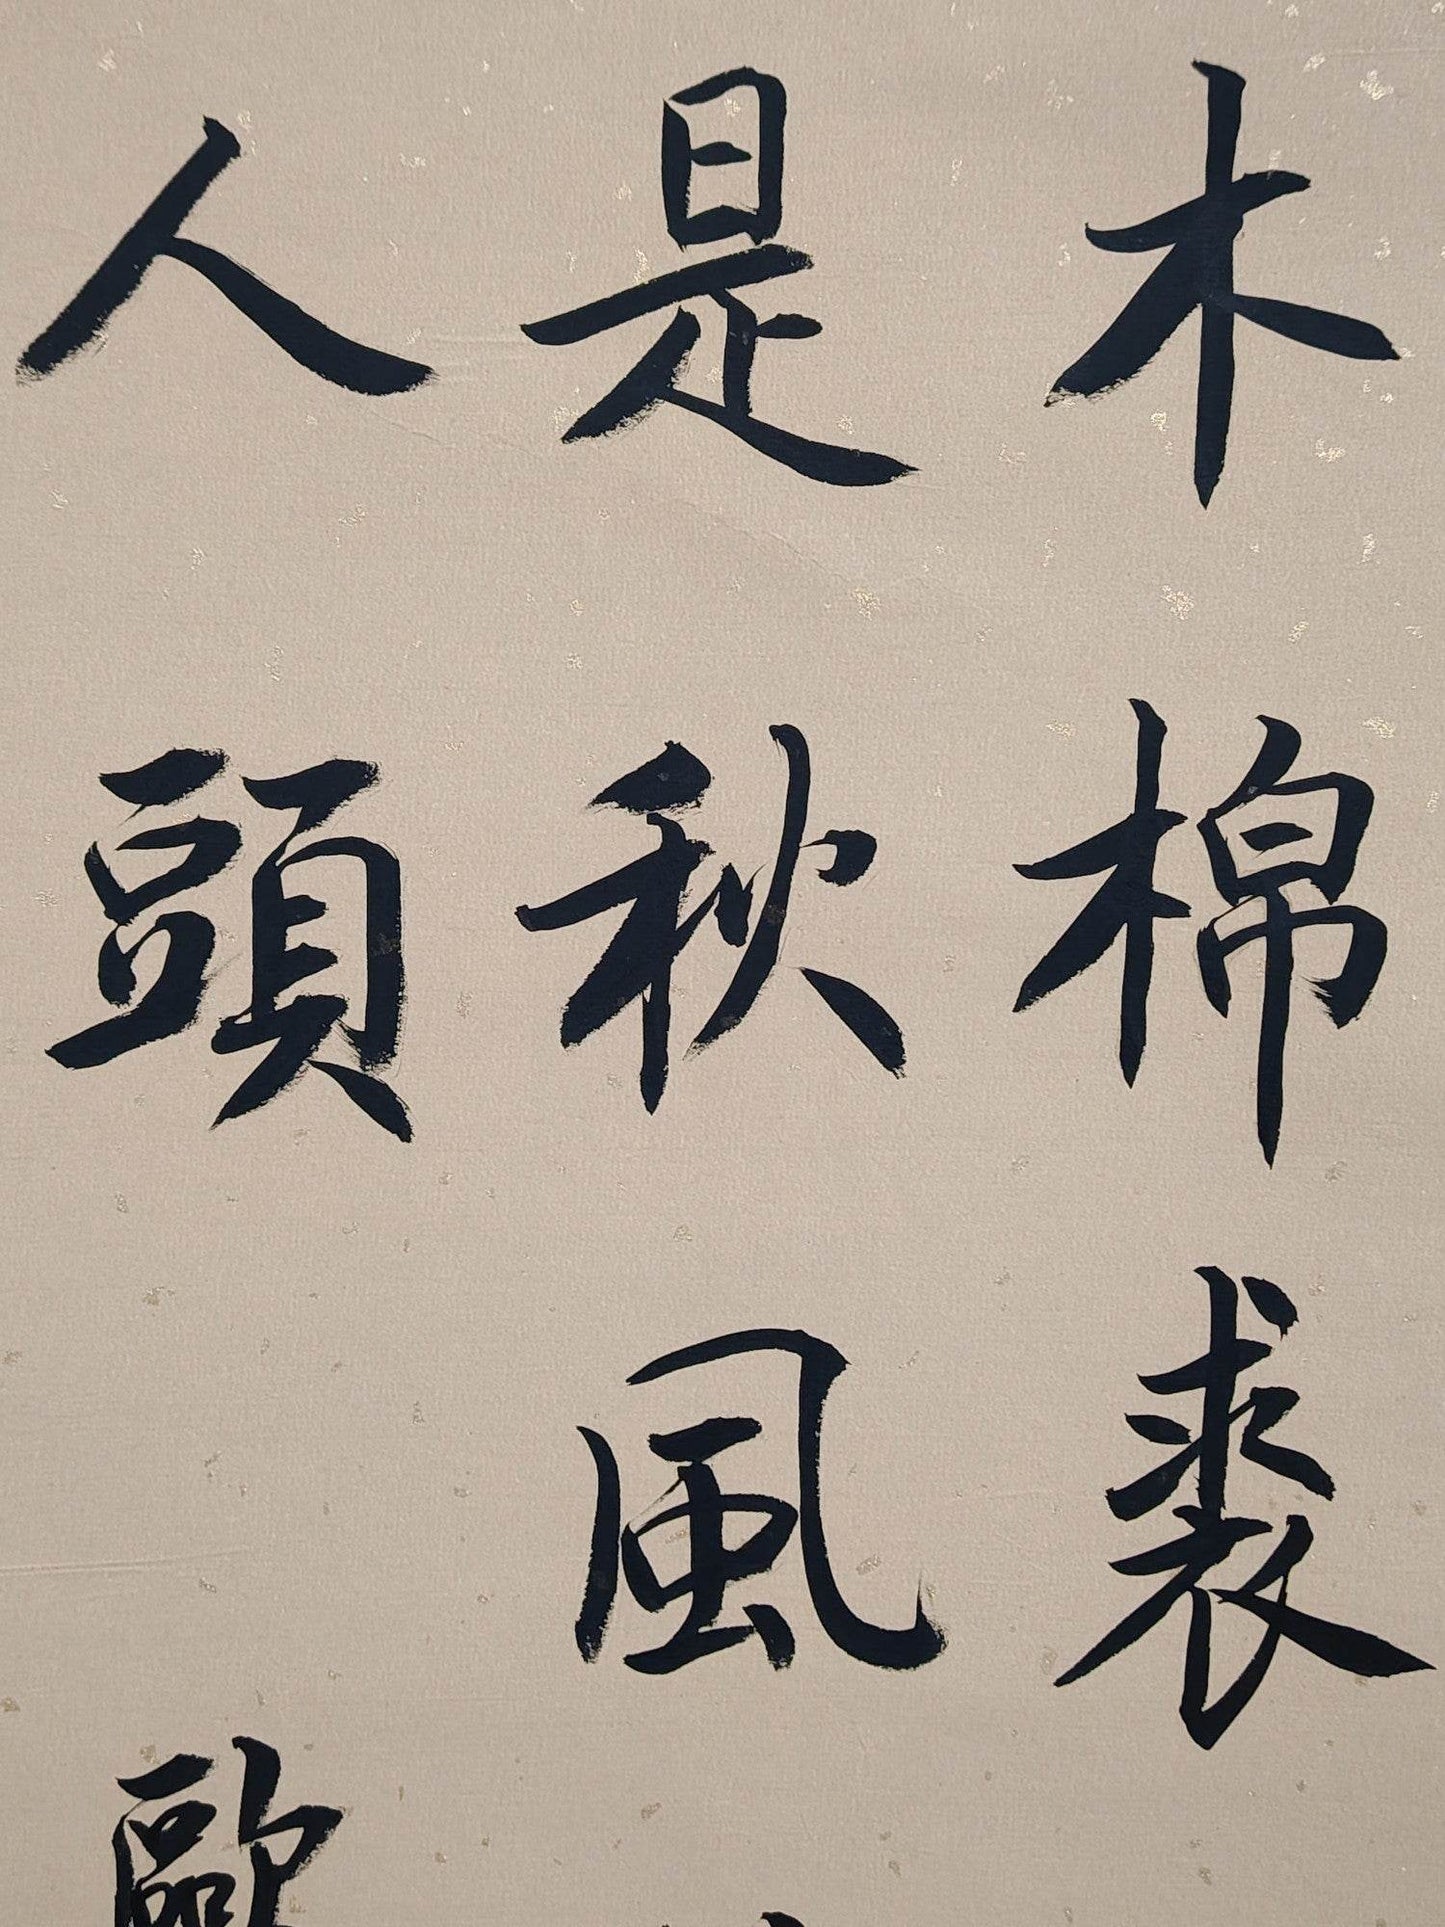 木棉裘
是秋風
人頭歐